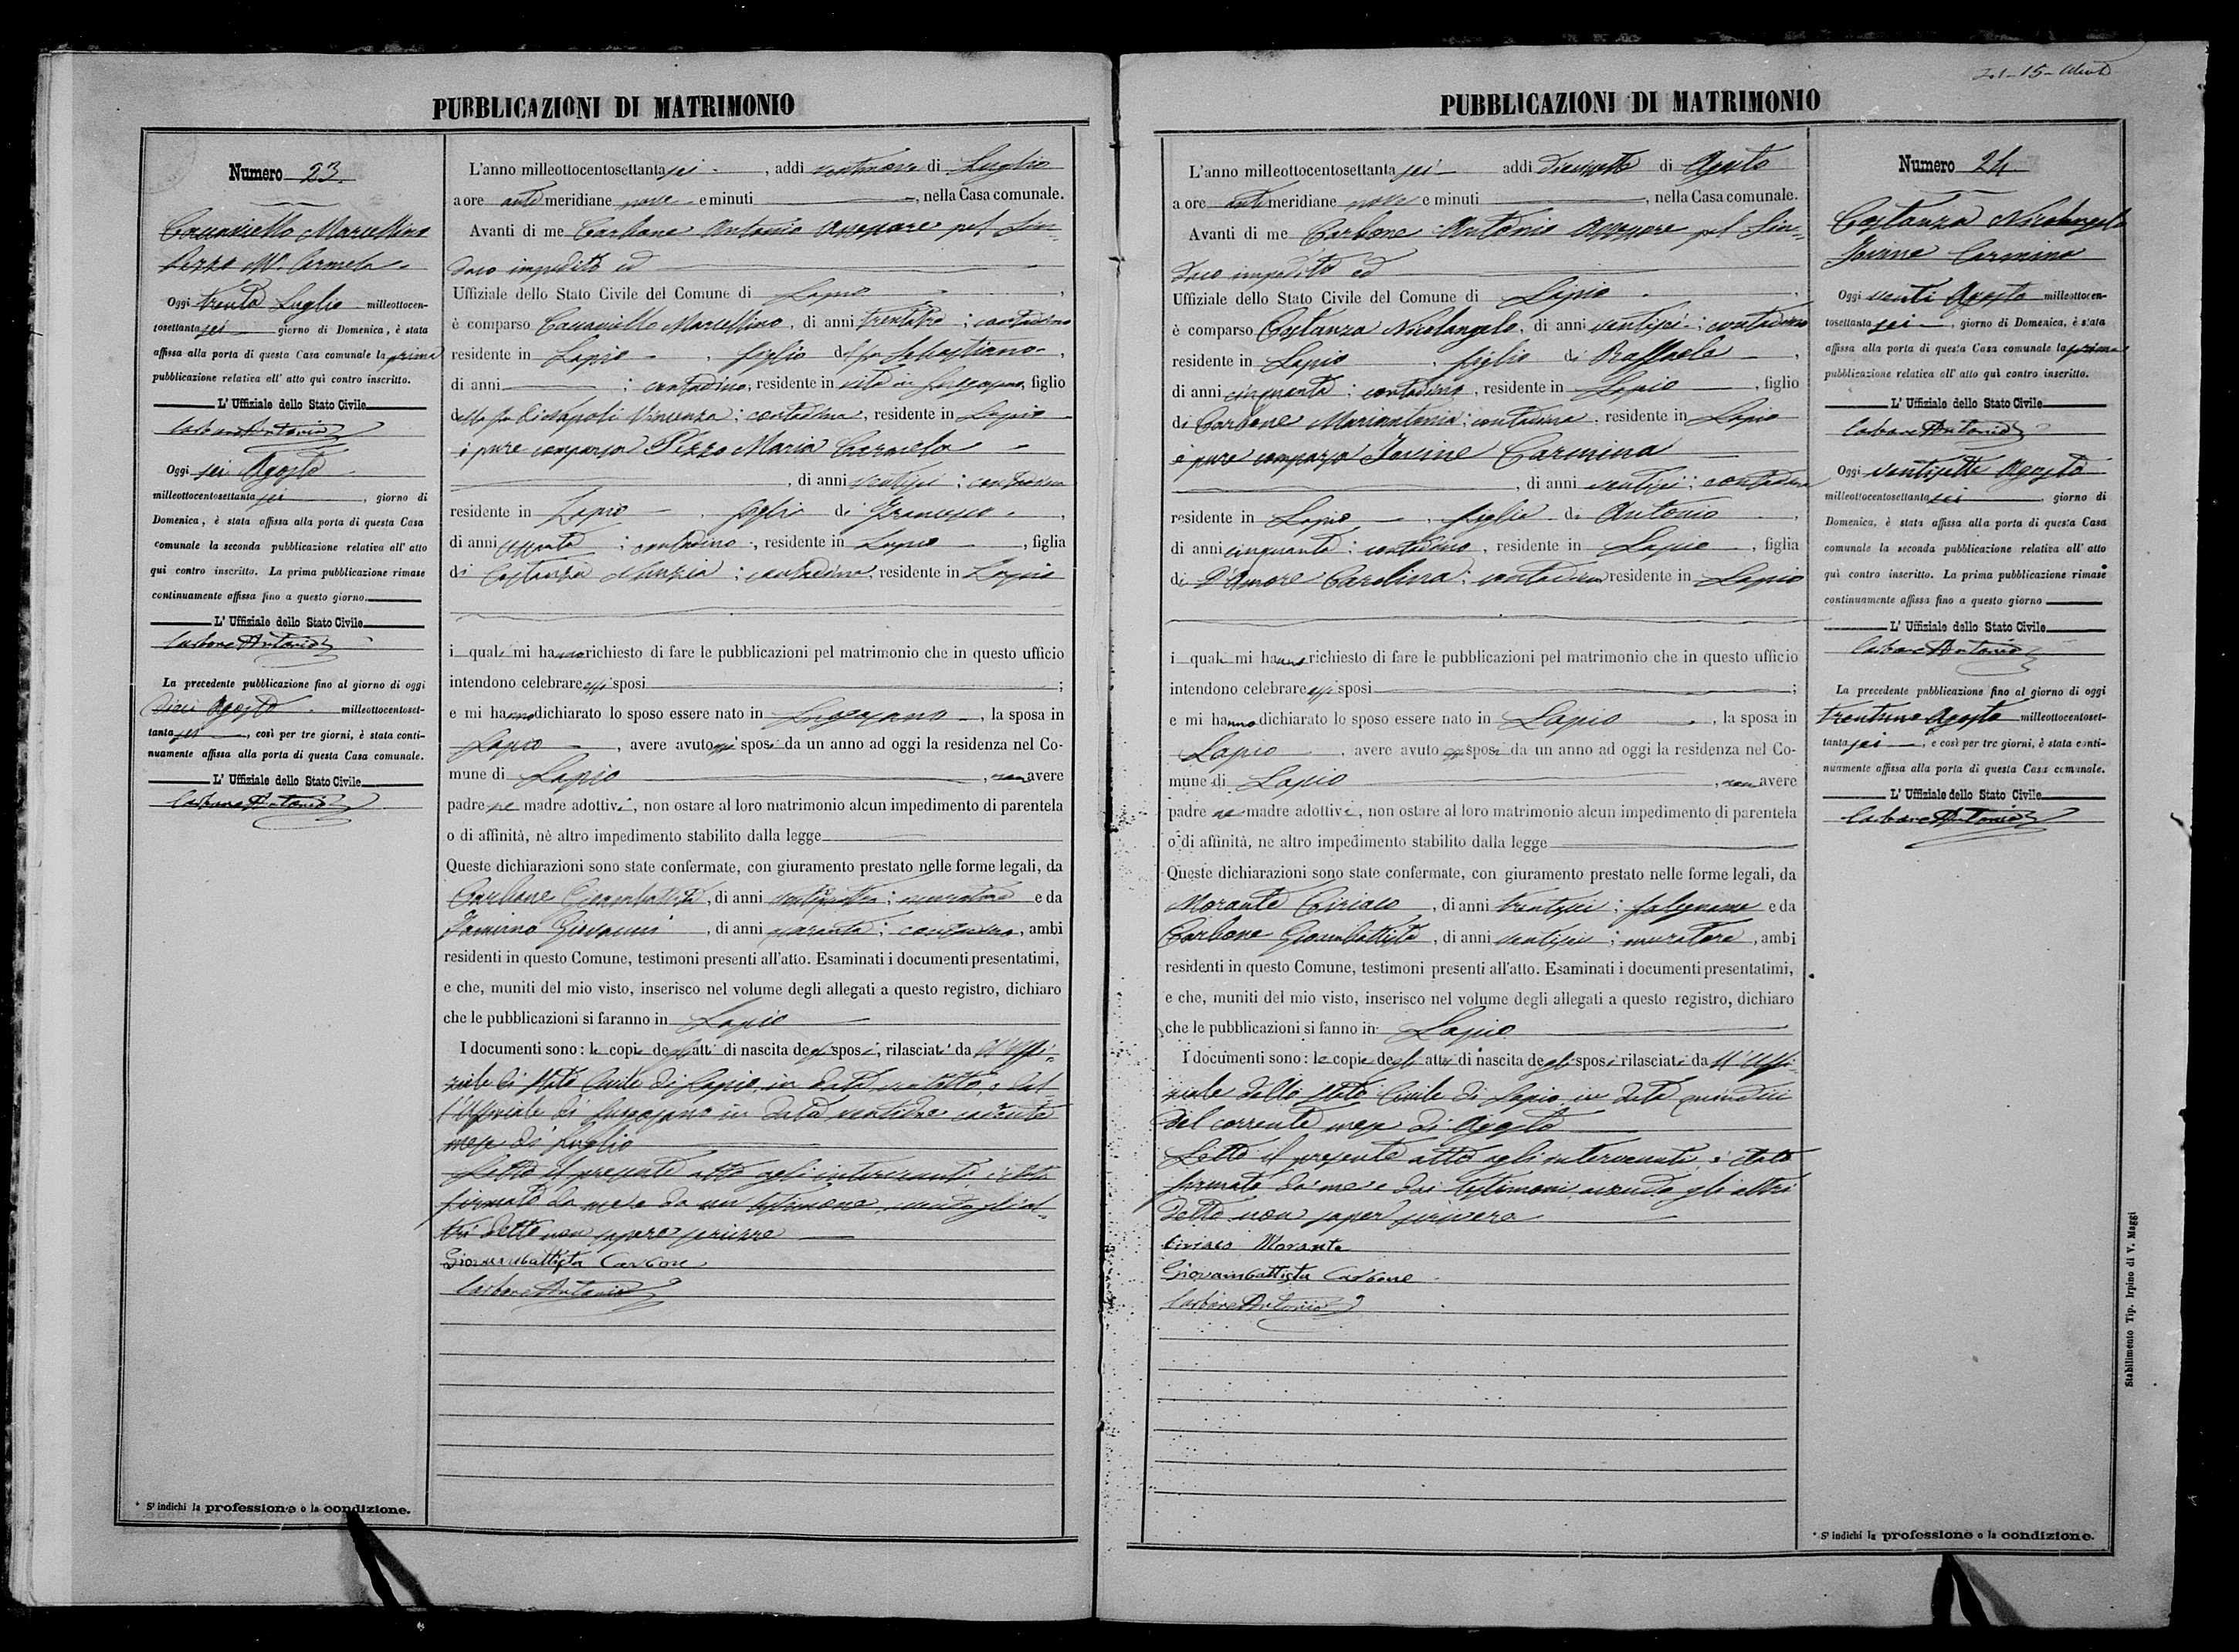 PUBBLICAZIONI DI MATRIMONIO
Numero 23
Marcellino
Pizzo M.ª Carmela
Oggi trenta Luglio milleottocen-
tosettantasei giorno di Domenica, è stata
affissa alla porta di questa Casa comunale la prima
pubblicazione relativa all' atto quì contro inscritto.
L' Uffiziale dello Stato Civile
Carbone Antonio
Oggi sei Agosto
milleottocentosettantasei, giorno di
Domenica, è stata affissa alla porta di questa Casa
comunale la seconda pubblicazione relativa all' atto
qui contro inscritto. La prima pubblicazione rimase
continuamente affissa fino a questo giorno.
L' Uffiziale dello Stato Civile
Carbone Antonio
La precedente pubblicazione fino al giorno di oggi
dieci Agosto milleottocentoset-
tantasei, così per tre giorni, è stata conti-
nuamente affissa alla porta di questa Casa comunale.
L' Uffiziale dello Stato Civile
Carbone Antonio
* S' indichi la professione o la condizione.
L'anno milleottocentosettantasei, addi ventinove di Luglio
a ore anti meridiane nove e minuti, nella Casa comunale.
Avanti di me Carbone Antonio Assessore pel Sin-
daco impedito ed
Uffiziale dello Stato Civile del Comune di Lapio,
è comparso Marcellino, di anni trentatre; contadino
residente in Lapio, figlio del fu Sebastiano,
di anni; contadino, residente in vita in, figlio
della fu Vincenza; contadina, residente in Lapio
è pure comparsa Pizzo Maria Carmela
, di anni ventisei; contadina
residente in Lapio, figlia di Francesco,
di anni; contadino, residente in Lapio, figlia
di Costanza Nunzia; contadina, residente in Lapio
i quali mi hanno richiesto di fare le pubblicazioni pel matrimonio che in questo ufficio
intendono celebrare essi sposi;
e mi hanno dichiarato lo sposo essere nato in, la sposa in
Lapio, avere avuto essi sposi da un anno ad oggi la residenza nel Co-
mune di Lapio, non avere
padre ne madre adottivi, non ostare al loro matrimonio alcun impedimento di parentela
o di affinità, nè altro impedimento stabilito dalla legge
Queste dichiarazioni sono state confermate, con giuramento prestato nelle forme legali, da
Carbone Giambattista, di anni; muratore e da
Giovanni, di anni quaranta; contadino, ambi
residenti in questo Comune, testimoni presenti all'atto. Esaminati i documenti presentatimi,
e che, muniti del mio visto, inserisco nel volume degli allegati a questo registro, dichiaro
che le pubblicazioni si faranno in Lapio
I documenti sono: le copie degli atti di nascita degli sposi, rilasciati da ll' Uffi-
ziale di Stato Civile di Lapio in data ventotto, e dal-
l'Uffiziale di in data corrente
mese di Luglio
Letto il presente atto agli intervenuti, è stato
firmato da me e da un testimone, avendo gli al-
tri detto non sapere scrivere
Giovambattista Carbone
Carbone Antonio
PUBBLICAZIONI DI MATRIMONIO
L'anno milleottocentosettantasei addì diecisette di Agosto
a ore anti meridiane nove e minuti, nella Casa comunale.
Avanti di me Carbone Antonio Assessore pel Sin-
daco impedito ed
Uffiziale dello Stato Civile del Comune di Lapio,
è comparso Costanza Nicolangelo, di anni ventisei; contadino
residente in Lapio, figlio di Raffaele,
di anni cinquanta; contadino, residente in Lapio, figlio
di Carbone Mariantonia; contadina, residente in Lapio
e pure comparsa Iovine Carmina
, di anni ventisei; contadina
residente in Lapio, figlia di Antonio,
di anni cinquanta; contadino, residente in Lapio, figlia
di D'Amore Carolina; contadina residente in Lapio
i quali mi hanno richiesto di fare le pubblicazioni pel matrimonio che in questo ufficio
intendono celebrare essi sposi;
e mi hanno dichiarato lo sposo essere nato in Lapio, la sposa in
Lapio, avere avuto essi sposi da un anno ad oggi la residenza nel Co-
mune di Lapio, non avere
padre ne madre adottivi, non ostare al loro matrimonio alcun impedimento di parentela
o di affinità, ne altro impedimento stabilito dalla legge
Queste dichiarazioni sono state confermate, con giuramento prestato nelle forme legali, da
Morante Ciriaco, di anni trentasei; falegname e da
Carbone Giambattista, di anni ventisei; muratore, ambi
residenti in questo Comune, testimoni presenti all'atto. Esaminati i documenti presentatimi,
e che, muniti del mio visto, inserisco nel volume degli allegati a questo registro, dichiaro
che le pubblicazioni si fanno in Lapio
I documenti sono: le copie degli atti di nascita degli sposi rilasciati da ll' Uffi-
ziale dello Stato Civile di Lapio in data quindici
del corrente mese di Agosto
Letto il presente atto agli intervenuti, è stato
firmato da me e dai testimoni, avendo gli altri
detto non saper scrivere
Ciriaco Morante
Giovambattista Carbone
Carbone Antonio
Numero 24
Costanza Nicolangelo
Iovine Carmina
Oggi venti Agosto milleottocen-
tosettantasei, giorno di Domenica, è stata
affissa alla porta di questa Casa comunale la prima
pubblicazione relativa all' atto quì contro inscritto.
L' Uffiziale dello Stato Civile
Carbone Antonio
Oggi ventisette Agosto
milleottocentosettantasei, giorno di
Domenica, è stata affissa alla porta di questa Casa
comunale la seconda pubblicazione relativa all' atto
quì contro inscritto. La prima pubblicazione rimase
continuamente affissa fino a questo giorno
L' Uffiziale dello Stato Civile
Carbone Antonio
La precedente pubblicazione fino al giorno di oggi
trentuno Agosto milleottocentoset-
tantasei, e così per tre giorni, è stata conti-
nuamente affissa alla porta di questa Casa comunale.
L' Uffiziale dello Stato Civile
Carbone Antonio
* S' indichi la professione o la condizione.
Stabilimento Tip. Irpino di V. Maggi